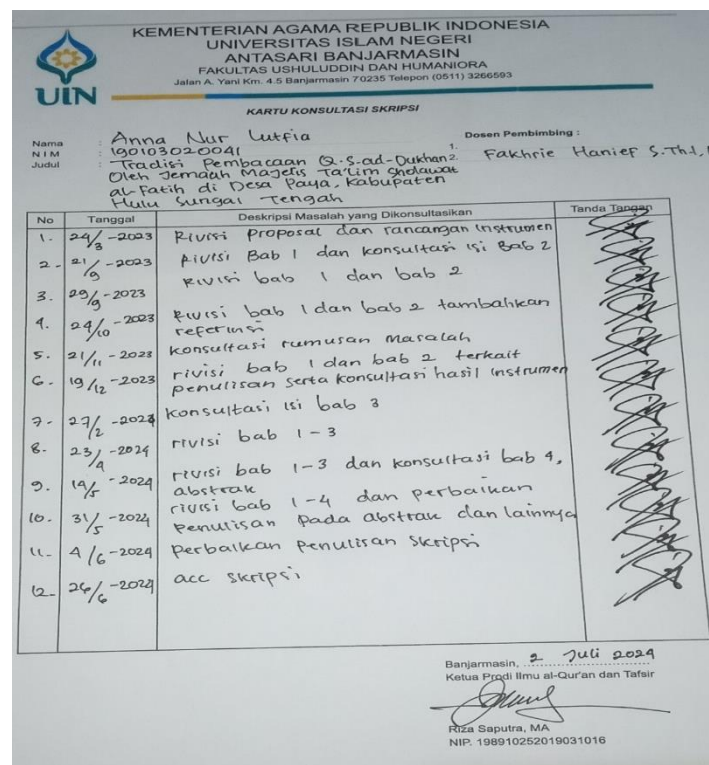 KEMENTERIAN AGAMA REPUBLIK INDONESIA
UNIVERSITAS ISLAM NEGERI
ANTASARI BANJARMASIN
FAKULTAS USHULUDDIN DAN HUMANIORA
Jalan A. Yani Km. 4.5 Banjarmasin 70235 Telepon (0511) 3266593
UIN
KARTU KONSULTASI SKRIPSI
Nama : Anna Nur Lutfia
NIM : 190103020041
Judul : Tradisi Pembacaan Q.S. ad-Dukhan
Oleh Jemaah Majelis Ta'lim Sholawat
al-Fatih di Desa Paya, Kabupaten
Hulu Sungai Tengah
Dosen Pembimbing :
1.
2. Fakhrie Hanief S.Th.I,
No Tanggal Deskripsi Masalah yang Dikonsultasikan Tanda Tangan
1. 24/3-2023 Rivisi proposal dan rancangan instrumen
2. 21/9-2023 rivisi Bab 1 dan konsultasi isi Bab 2
3. 29/9-2023 rivisi bab 1 dan bab 2
4. 24/10-2023 rivisi bab 1 dan bab 2 tambahkan
referinsi
5. 21/11-2023 konsultasi rumusan masalah
6. 19/12-2023 rivisi bab 1 dan bab 2 terkait
penulisan serta konsultasi hasil instrumen
7. 27/2-2024 konsultasi isi bab 3
8. 23/4-2024 rivisi bab 1-3
9. 14/5-2024 rivisi bab 1-3 dan konsultasi bab 4,
abstrak
10. 31/5-2024 rivisi bab 1-4 dan perbaikan
penulisan pada abstrak dan lainnya
11. 4/6-2024 perbaikan penulisan skripsi
12. 26/6-2024 acc skripsi
Banjarmasin, 2 Juli 2024
Ketua Prodi Ilmu al-Qur'an dan Tafsir
Riza Saputra, MA
NIP. 198910252019031016